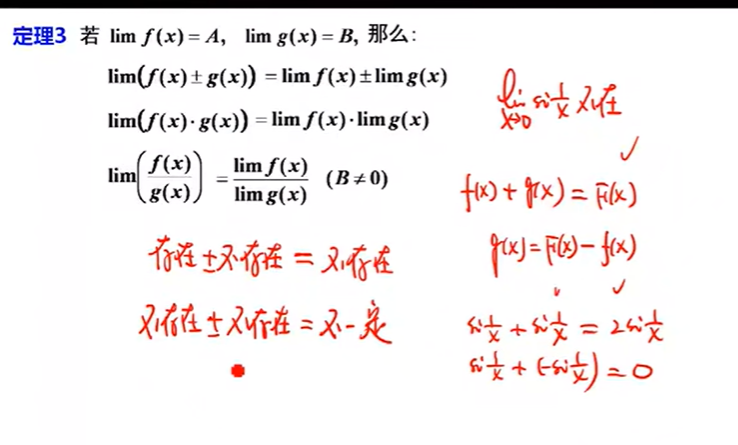 定理3 若 lim f(x) = A, lim g(x) = B, 那么:
lim(f(x) ± g(x)) = lim f(x) ± lim g(x)
lim(f(x) · g(x)) = lim f(x) · lim g(x)
lim(f(x)/g(x)) = lim f(x)/lim g(x) (B ≠ 0)
存在 ± 不存在 = 不存在
不存在 ± 不存在 = 不一定
lim x→0 sin 1/x 不存在
f(x) + g(x) = F(x)
g(x) = F(x) - f(x)
sin 1/x + sin 1/x = 2 sin 1/x
sin 1/x + (-sin 1/x) = 0